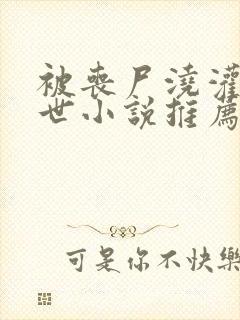 被喪尸澆灌
世小說推薦
可是你不快樂